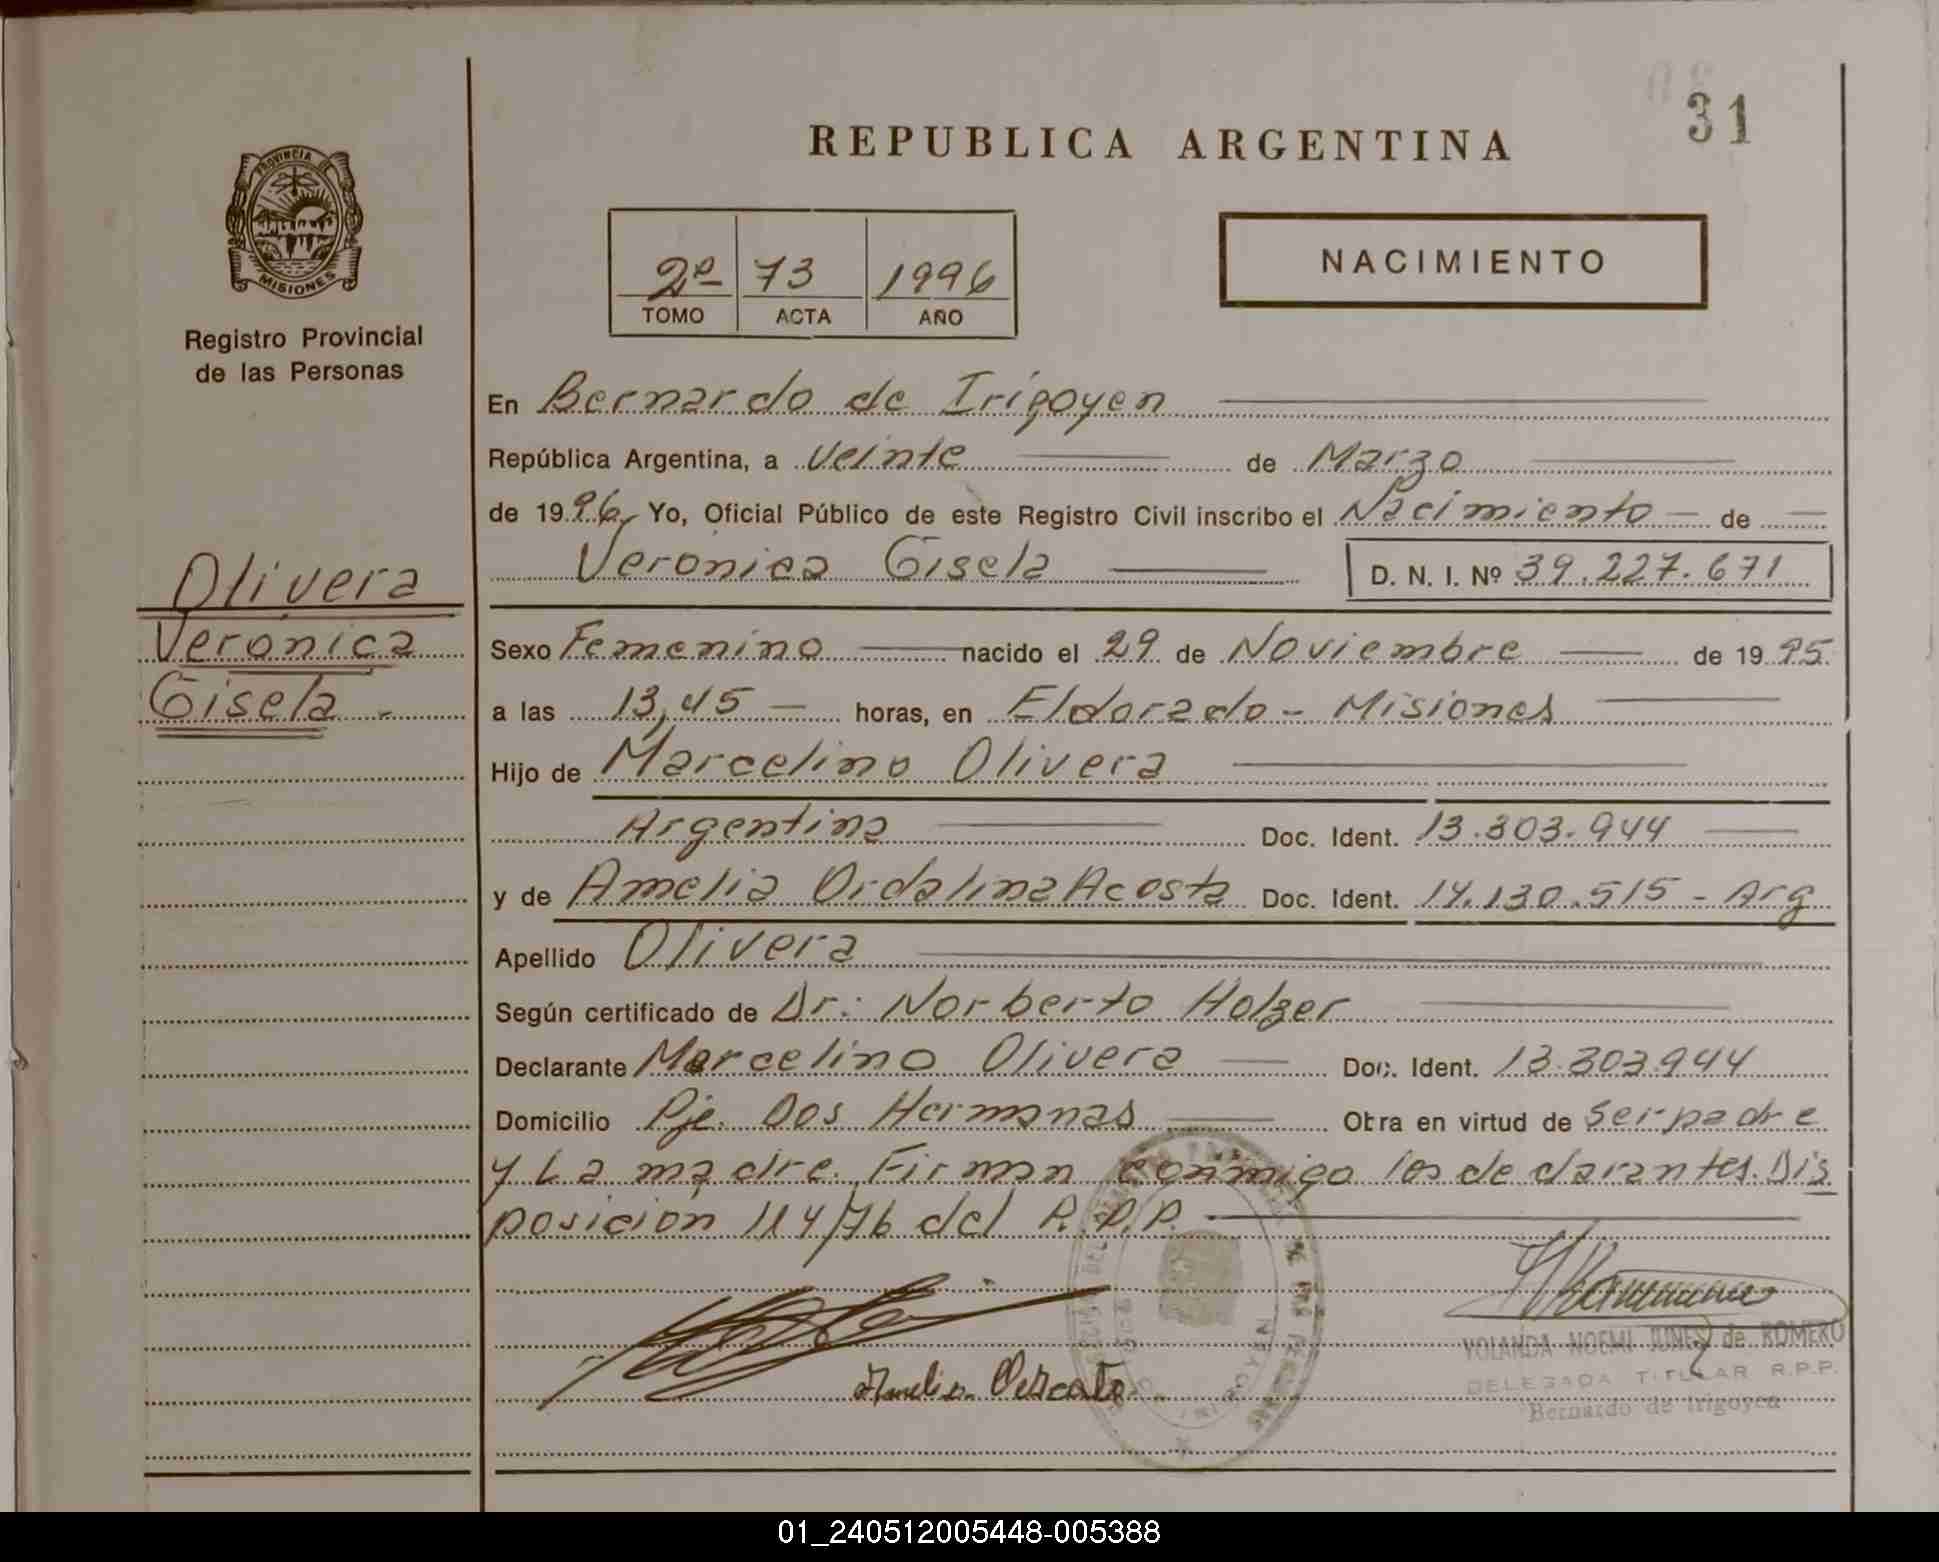 31
REPUBLICA ARGENTINA
PROVINCIA
MISIONES
Registro Provincial
de las Personas
2º 73 1996
TOMO ACTA AÑO
NACIMIENTO
En Bernardo de Irigoyen
República Argentina, a veinte de Marzo
de 1996 Yo, Oficial Público de este Registro Civil inscribo el Nacimiento de
Verónica Gisela D. N. I. Nº 39.227.671
Olivera
Verónica
Gisela
Sexo Femenino nacido el 29 de Noviembre de 1995
a las 13,45 horas, en Eldorado - Misiones
Hijo de Marcelino Olivera
Argentina Doc. Ident. 13.303.944
y de Amelia Ordalina Acosta Doc. Ident. 14.130.515 - Arg
Apellido Olivera
Según certificado de Dr. Norberto Holzer
Declarante Marcelino Olivera Doc. Ident. 13.303.944
Domicilio Pje. Dos Hermanas Obra en virtud de Ser padre
y La madre. Firman conmigo los declarantes. Dis
posición 114/76 del R.P.P.
Amelia
YOLANDA NOEMI JUNES de ROMERO
DELEGADA TITULAR R.P.P.
Bernardo de Irigoyen
01_240512005448-005388